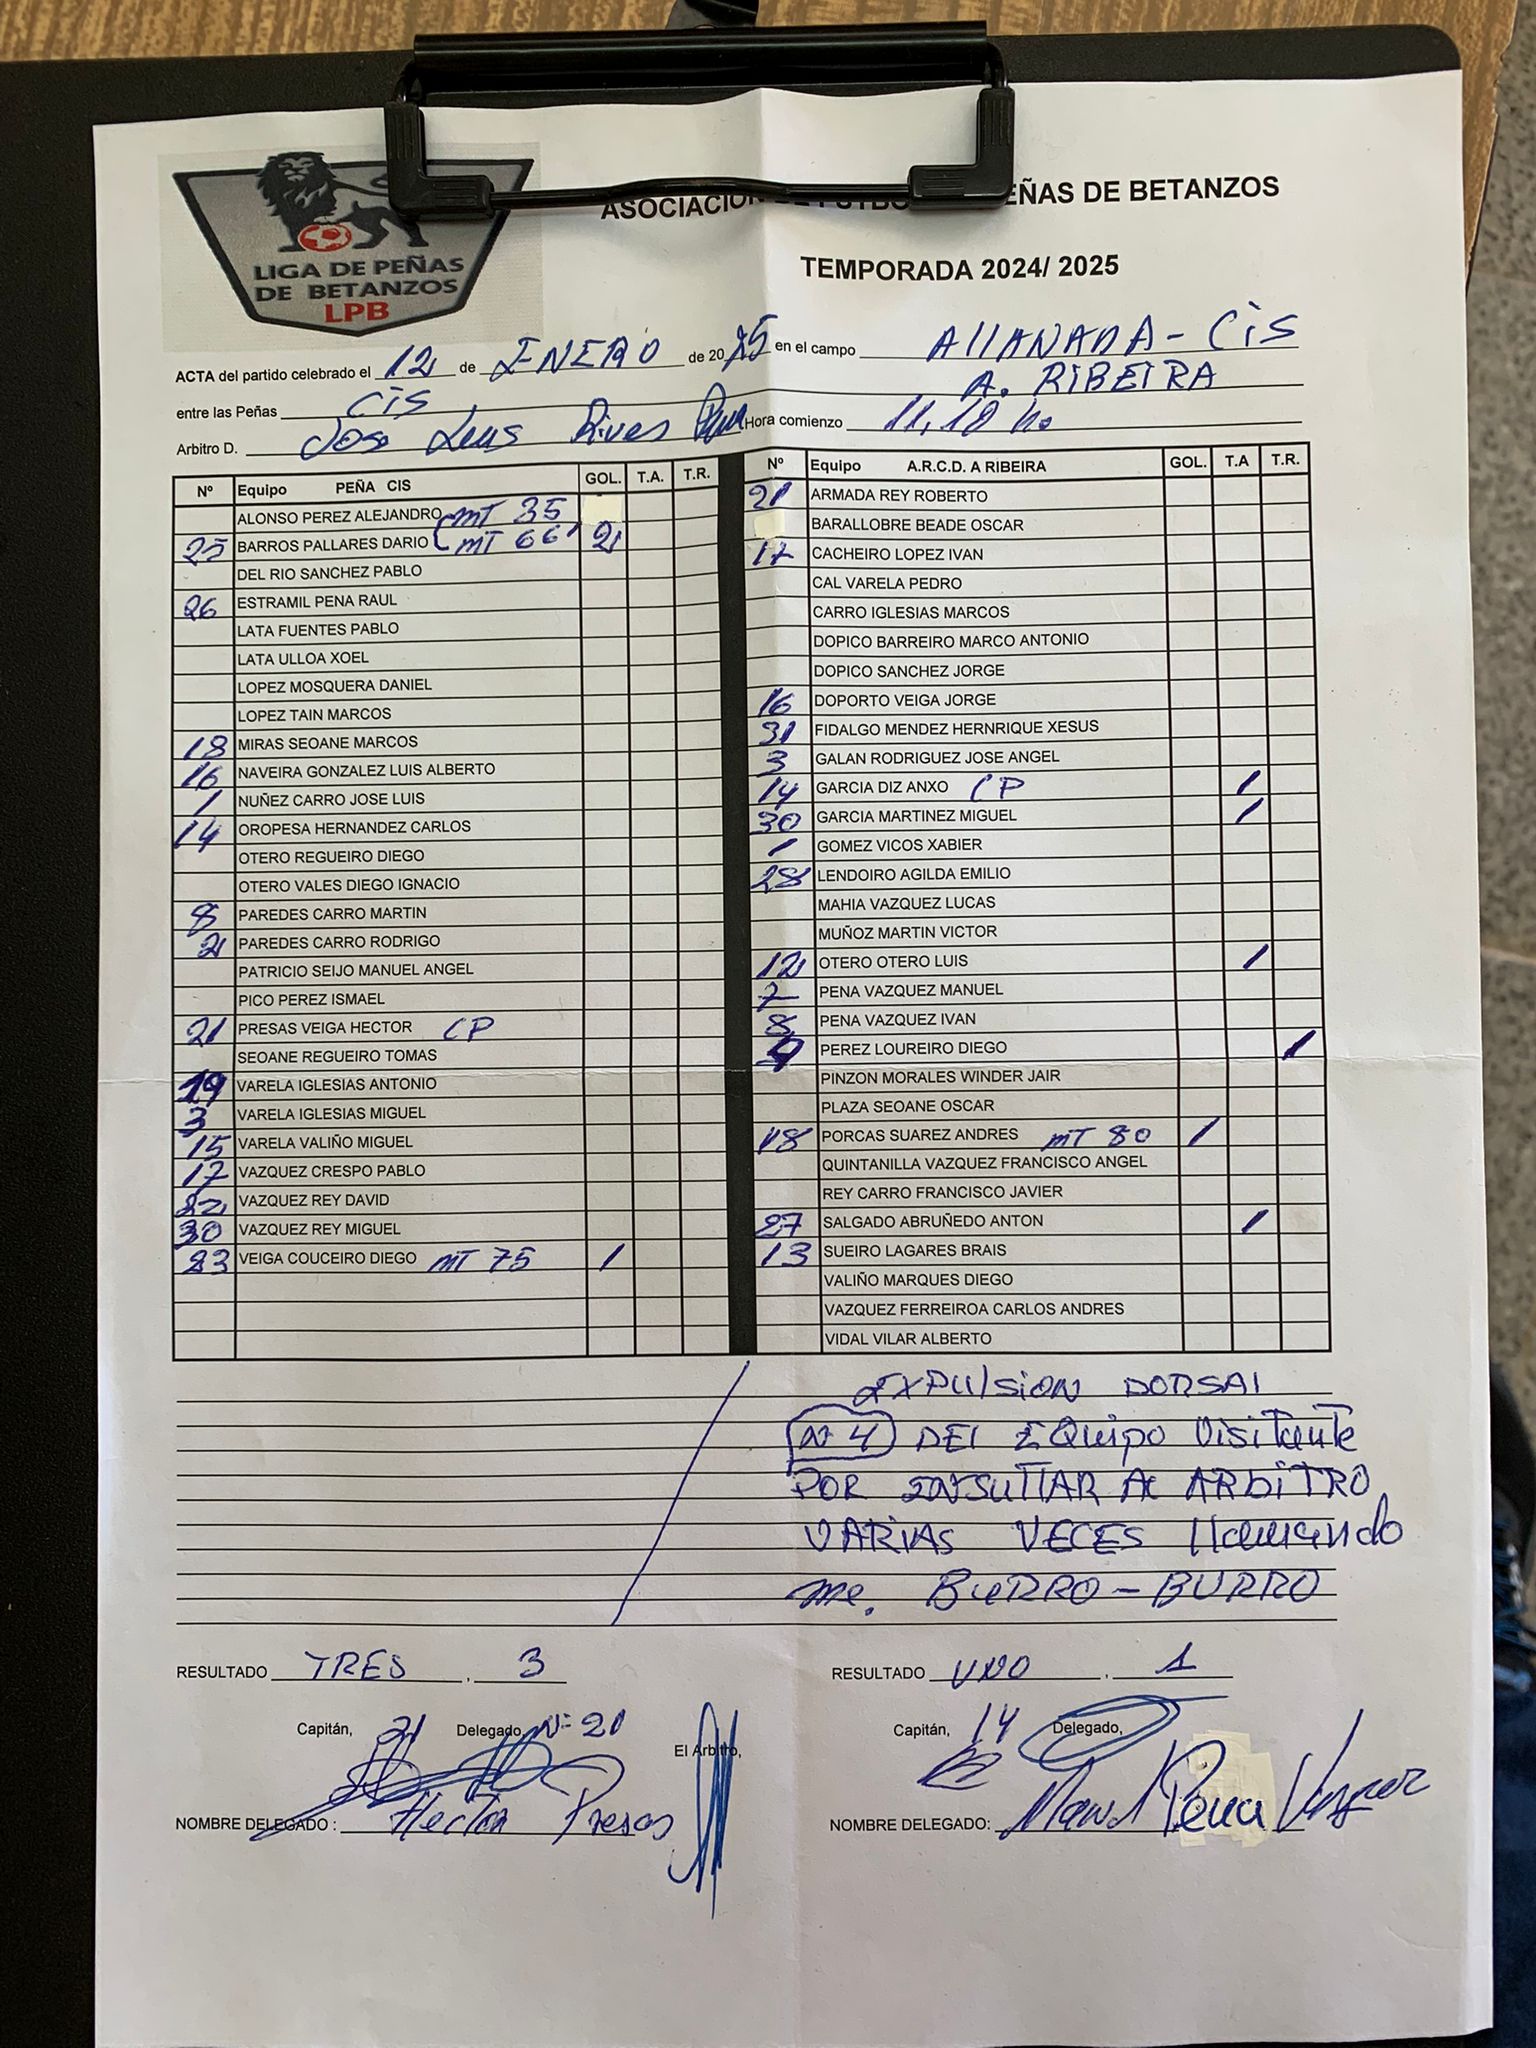 ASOCIACION DE FUTBO EÑAS DE BETANZOS
LIGA DE PEÑAS
DE BETANZOS
LPB
TEMPORADA 2024/ 2025
ACTA del partido celebrado el 12 de ENERO de 2025 en el campo AllANADA - CiS
entre las Peñas CiS A. RIBEIRA
Arbitro D. Jose Luis Rivas Hora comienzo 11,10 h.
Nº Equipo PEÑA CIS GOL. T.A. T.R.
ALONSO PEREZ ALEJANDRO mT 35
25 BARROS PALLARES DARIO mT 66' 2
DEL RIO SANCHEZ PABLO
26 ESTRAMIL PENA RAUL
LATA FUENTES PABLO
LATA ULLOA XOEL
LOPEZ MOSQUERA DANIEL
LOPEZ TAIN MARCOS
18 MIRAS SEOANE MARCOS
16 NAVEIRA GONZALEZ LUIS ALBERTO
1 NUÑEZ CARRO JOSE LUIS
14 OROPESA HERNANDEZ CARLOS
OTERO REGUEIRO DIEGO
OTERO VALES DIEGO IGNACIO
8 PAREDES CARRO MARTIN
2 PAREDES CARRO RODRIGO
PATRICIO SEIJO MANUEL ANGEL
PICO PEREZ ISMAEL
21 PRESAS VEIGA HECTOR CP
SEOANE REGUEIRO TOMAS
19 VARELA IGLESIAS ANTONIO
3 VARELA IGLESIAS MIGUEL
15 VARELA VALIÑO MIGUEL
17 VAZQUEZ CRESPO PABLO
22 VAZQUEZ REY DAVID
30 VAZQUEZ REY MIGUEL
23 VEIGA COUCEIRO DIEGO mT 75 1
Nº Equipo A.R.C.D. A RIBEIRA GOL. T.A T.R.
21 ARMADA REY ROBERTO
BARALLOBRE BEADE OSCAR
17 CACHEIRO LOPEZ IVAN
CAL VARELA PEDRO
CARRO IGLESIAS MARCOS
DOPICO BARREIRO MARCO ANTONIO
DOPICO SANCHEZ JORGE
16 DOPORTO VEIGA JORGE
31 FIDALGO MENDEZ HERNRIQUE XESUS
3 GALAN RODRIGUEZ JOSE ANGEL
14 GARCIA DIZ ANXO CP 1
30 GARCIA MARTINEZ MIGUEL 1
1 GOMEZ VICOS XABIER
28 LENDOIRO AGILDA EMILIO
MAHIA VAZQUEZ LUCAS
MUÑOZ MARTIN VICTOR
12 OTERO OTERO LUIS 1
7 PENA VAZQUEZ MANUEL
8 PENA VAZQUEZ IVAN
4 PEREZ LOUREIRO DIEGO 1
PINZON MORALES WINDER JAIR
PLAZA SEOANE OSCAR
18 PORCAS SUAREZ ANDRES mT 80 1
QUINTANILLA VAZQUEZ FRANCISCO ANGEL
REY CARRO FRANCISCO JAVIER
27 SALGADO ABRUÑEDO ANTON 1
13 SUEIRO LAGARES BRAIS
VALIÑO MARQUES DIEGO
VAZQUEZ FERREIROA CARLOS ANDRES
VIDAL VILAR ALBERTO
EXPUlsiON DORSAl
Nº 4 DEl EQuipo Visitante
POR INSUlTAR Al ARBiTRO
VARIAS VECES llamando
me. BURRO - BURRO
RESULTADO TRES , 3
RESULTADO UNO , 1
Capitán, 21 Delegado, Nº 20
El Arbitro,
Capitán, 14 Delegado,
NOMBRE DELEGADO : Hector Presas
NOMBRE DELEGADO: Manuel Pena Vazquez